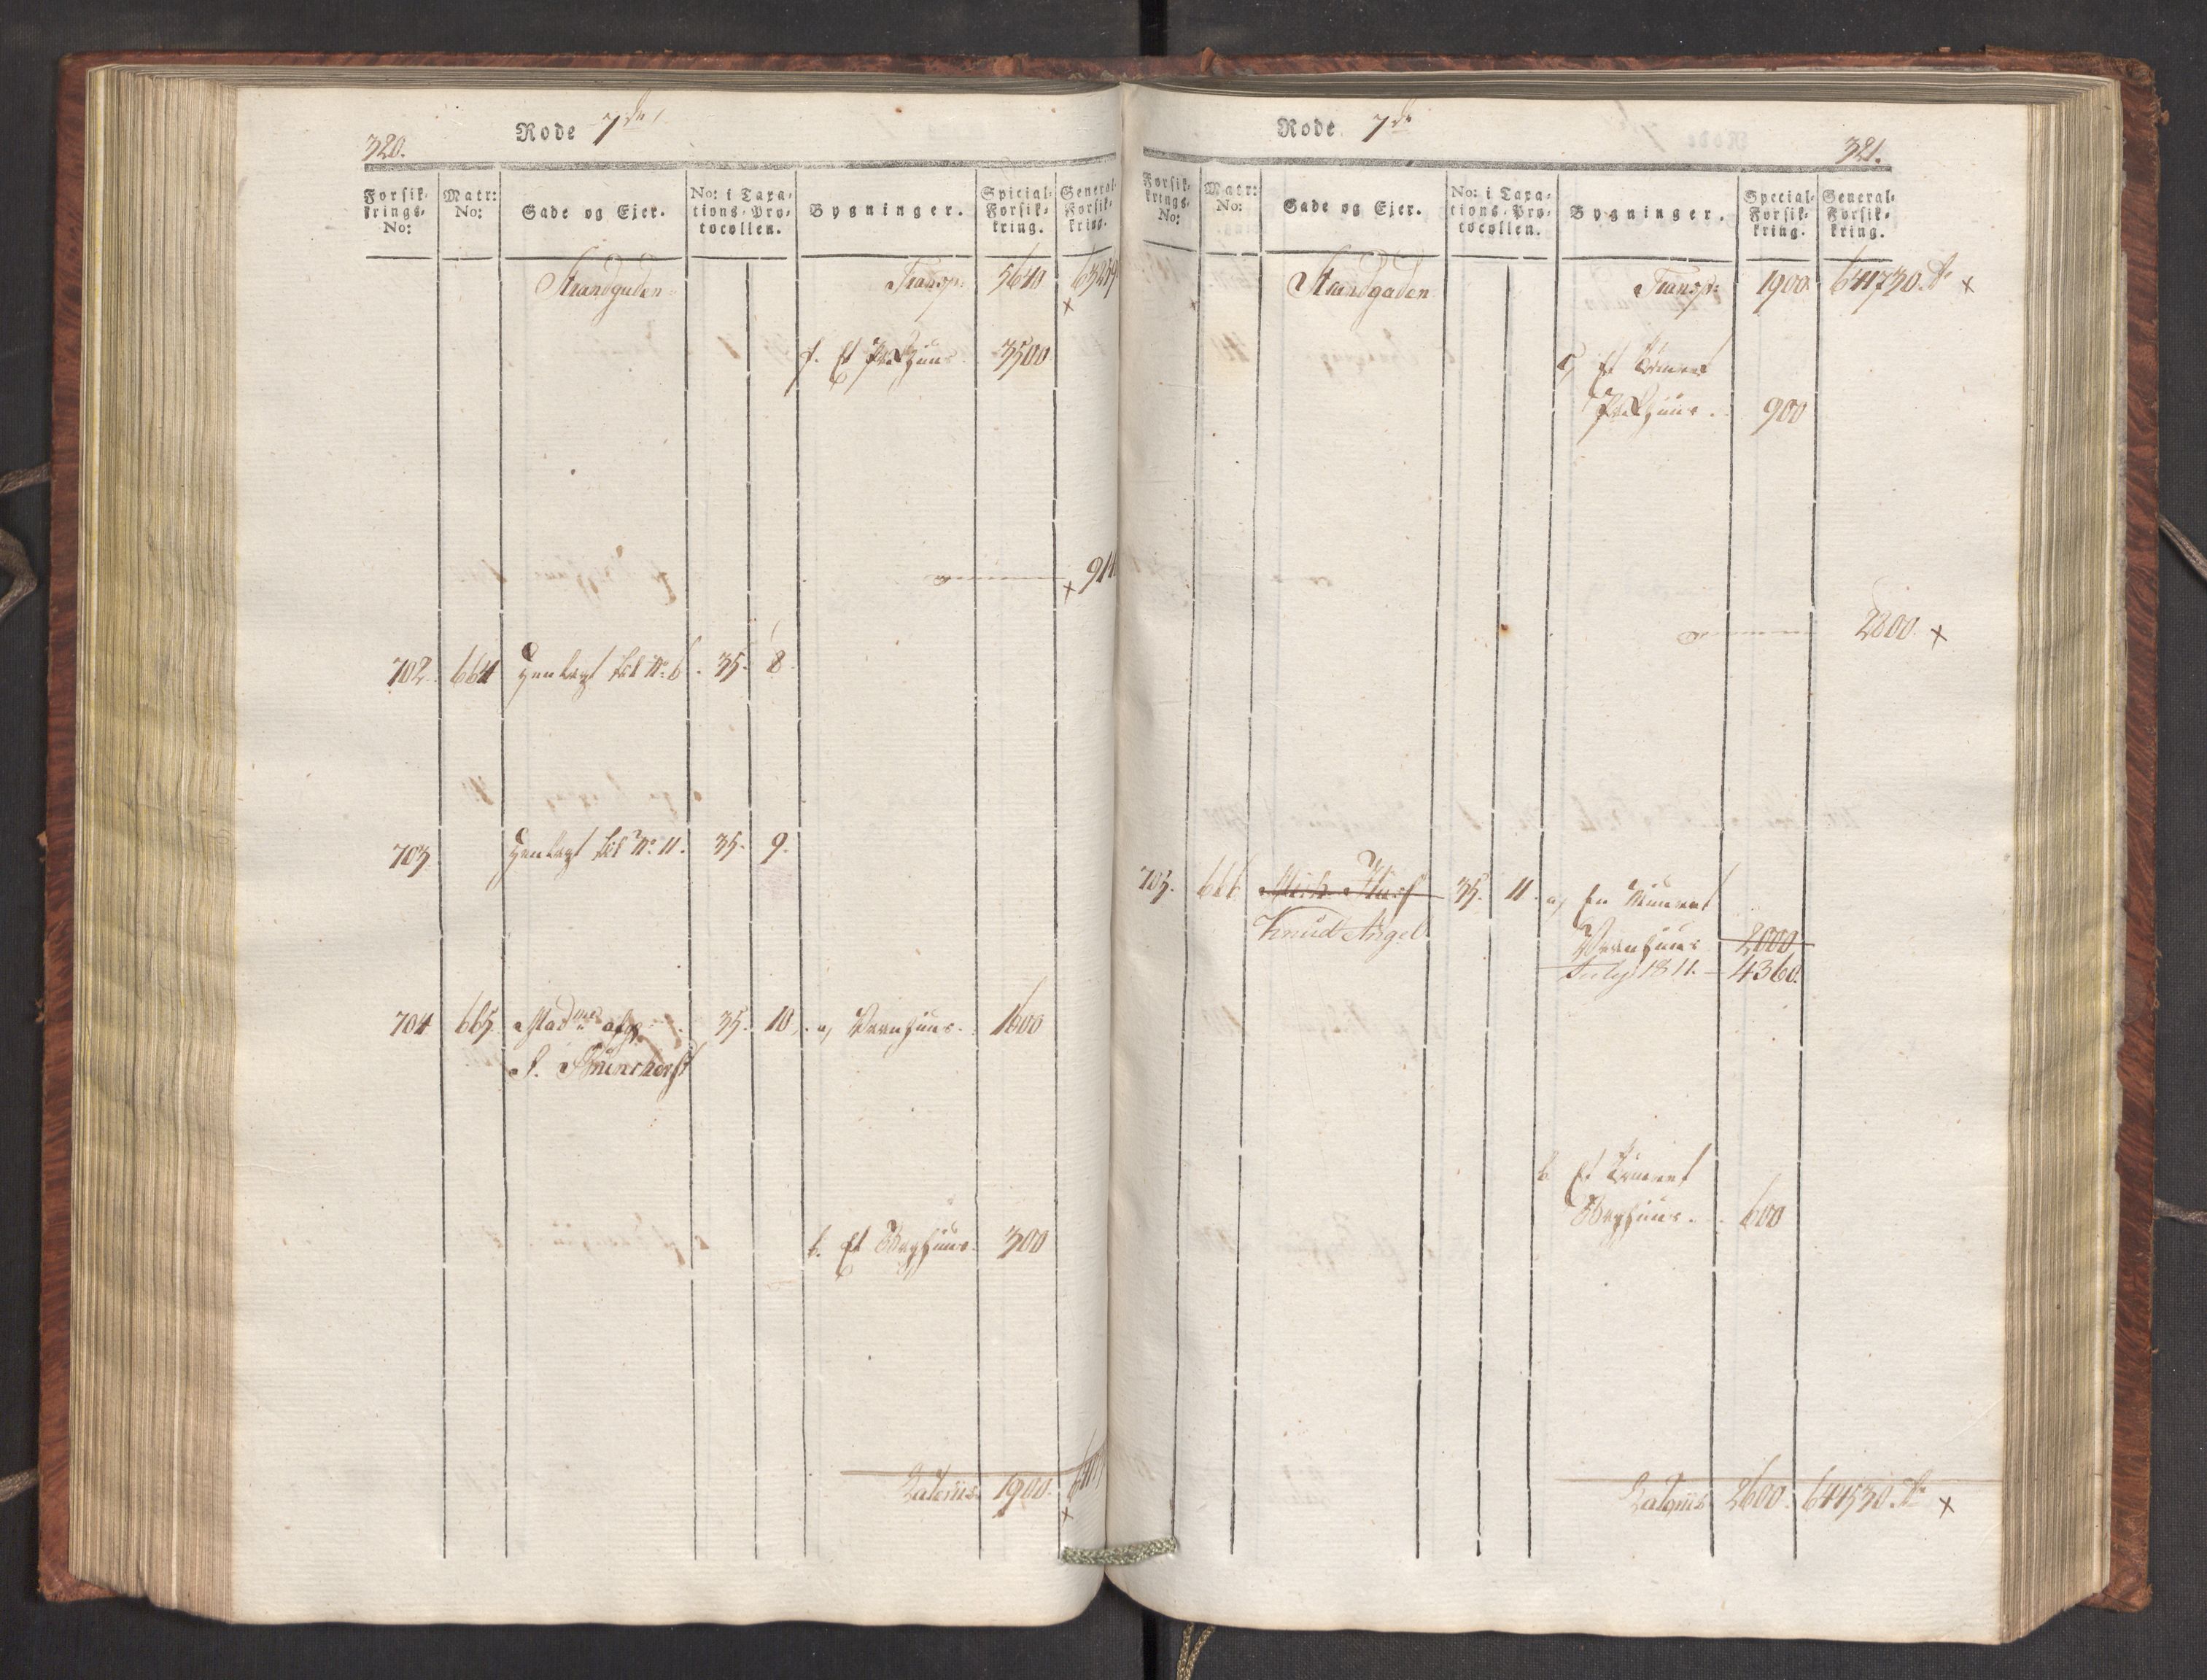 320.
Rode 7de
Forsik-
krings-
No:
Matr:
No:
Gade og Ejer.
No: i Taxa-
tions-Pro-
tocollen.
Bygninger.
Spicial-
Forsik-
kring.
General-
Forsik-
kring.
Strandgaden
Transp: 5640
f. Et Pakhuus 3500
702. 664 Henlagt til No. 6. 35. 8.
703. Henlagt til No. 11. 35. 9.
704 665. Mad
35. 10. a, Vaanhuus. 1600
b. Et Baghuus. 300
Lateris 1900.
Rode 7de
321.
Forsik-
krings-
No:
Matr:
No:
Gade og Ejer.
No: i Taxa-
tions-Pro-
tocollen.
Bygninger.
Special-
Forsik-
kring.
General-
Forsik-
kring.
Strandgaden
Transp: 1900. 641730.
Et
Pakhuus. 900
2800.
705. 666 35. 11. a, En Muuret
Knud Angel
Vaanhuus 2000
July 1811. 4360.
b Et
Baghuus. 600
Lateris 2600. 644530.